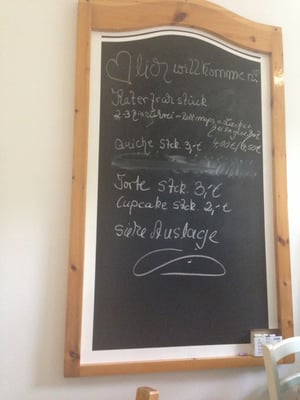 ♡lich willkommen!
Katerfrühstück
2-3
Quiche Stck 3,-€ 4,00€/6,50€
Torte Stck. 3,-€
Cupcake Stck. 2,-€
siehe Auslage